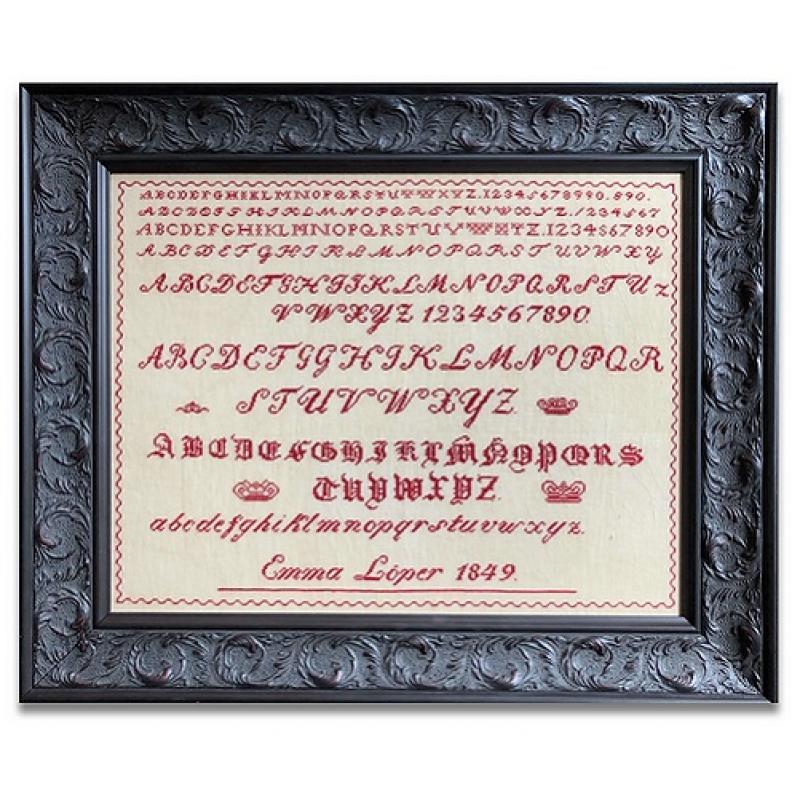 ABCDEFGHIKLMNOPQRSTUVWXYZ.1234567890.890.
ABCDEFGHIKLMNOPQRSTUVWXYZ./1234567
ABCDEFGHIKLMNOPQRSTUVWXYZ.1234567890
ABCDEFGHIKLMNOPQRSTUVWXY
ABCDEFGHIJKLMNOPQRSTUZ
VWXYZ 1234567890.
ABCDEFGHJKLMNOPQR
STUVWXYZ.
ABCDEFGHIKLMNOPQRS
TUVWXYZ.
abcdefghiklmnopqrstuvwxyz.
Emma Löper 1849.